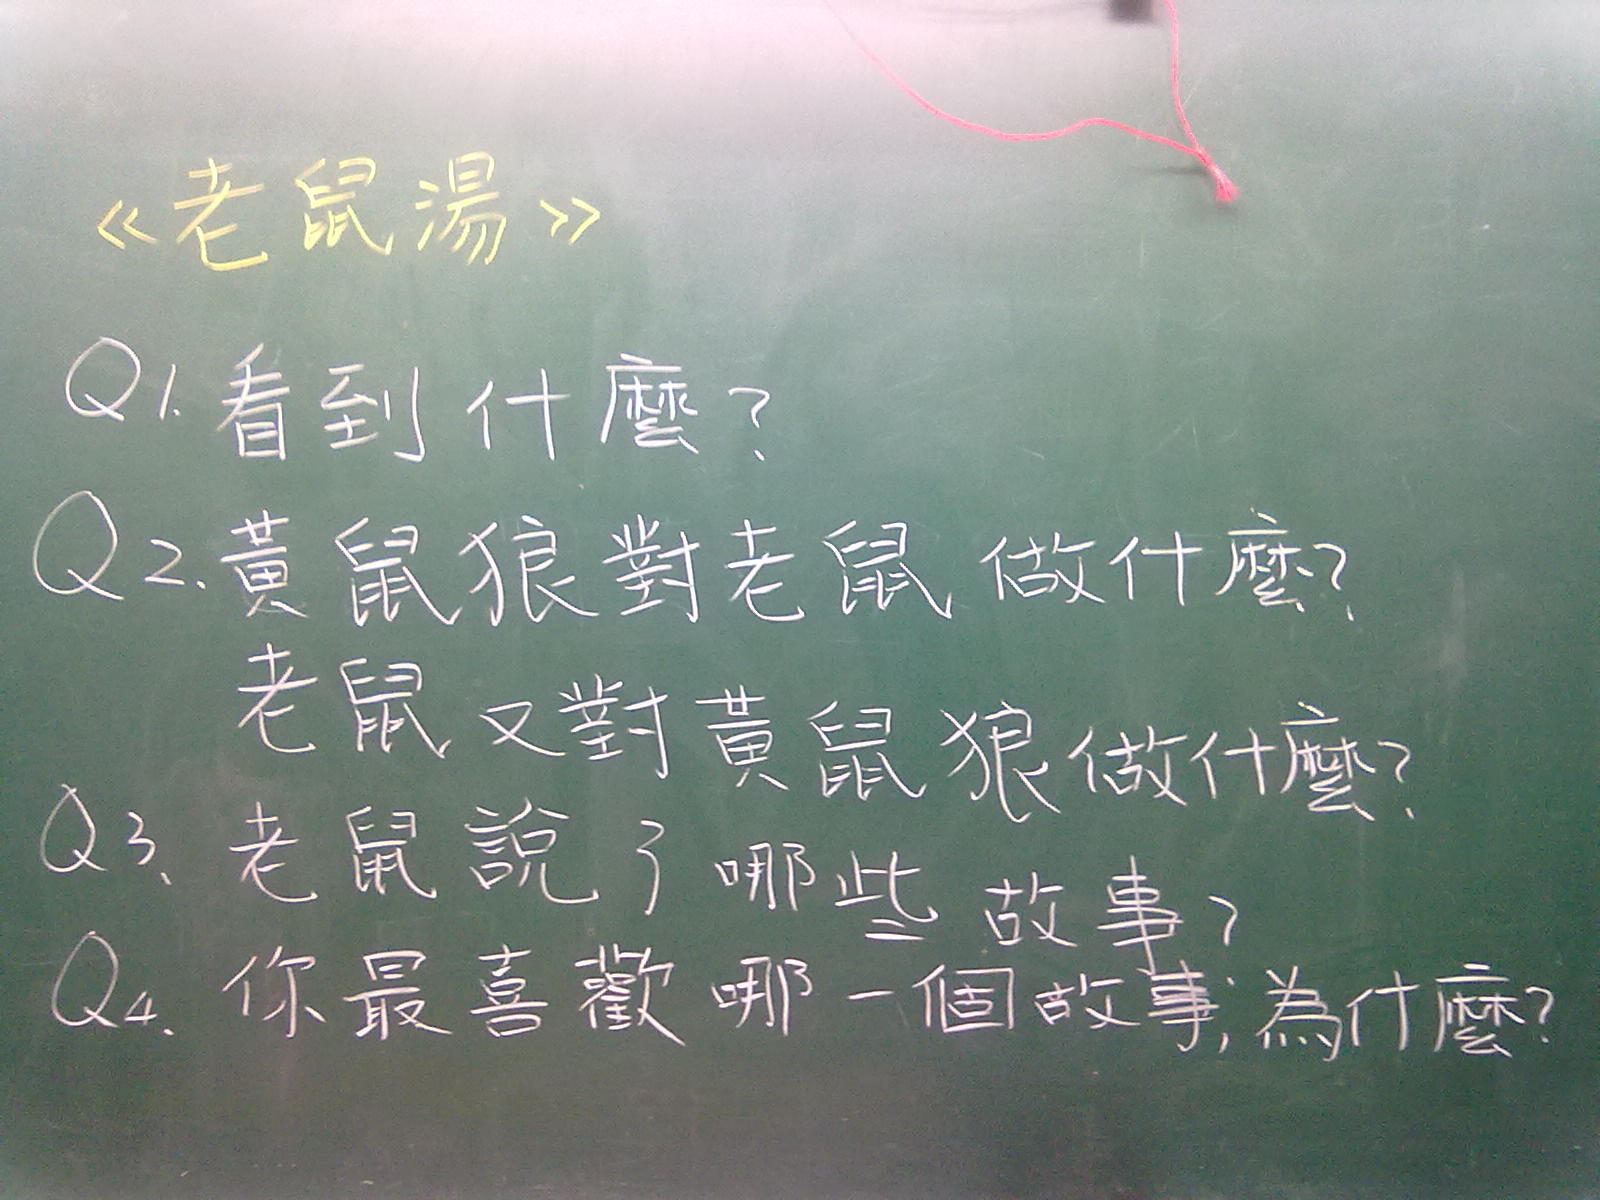 《老鼠湯》
Q1. 看到什麼?
Q2. 黃鼠狼對老鼠做什麼?
老鼠又對黃鼠狼做什麼?
Q3. 老鼠說了哪些故事?
Q4. 你最喜歡哪一個故事,為什麼?